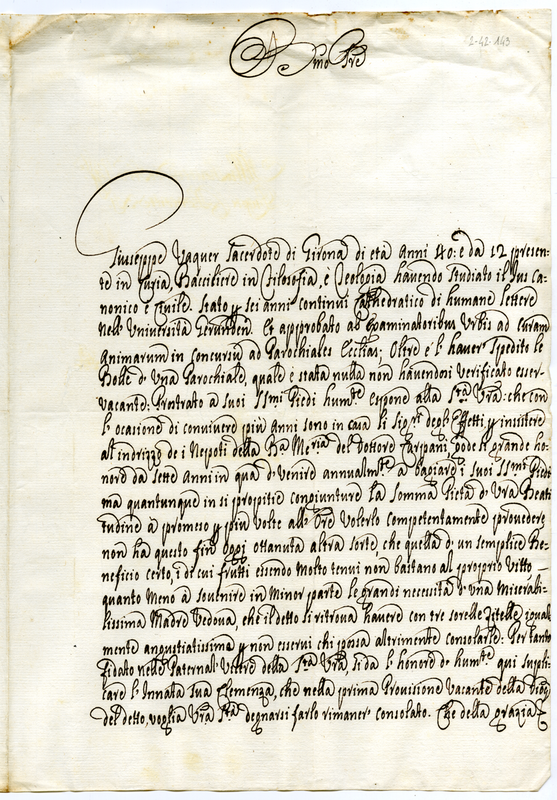 2-42-143
Bmo Pre
Giuseppe Vaquer Sacerdote di Girona di età Anni 40: e da 12 presen-
te in Curia Baccilliere in Filosofia, e Teologia havendo studiato il Jus Ca-
nonico e Civile. Stato p sei anni continui Cathedratico di humane lettere
nell' Università Gerunden. Et approbato ab Examinatoribus Urbis ad Curam
Animarum in concursu ad Parochiales Ecclias; Oltre e l' haver spedito le
Bolle d' Una Parochiale, quale è stata nulla non havendosi verificato esser
vacante: Prostrato a suoi SSmi Piedi humte espone alla Stà Vra: che con
l' ocasione di convivere più Anni sono in casa li Sigri degl' Effetti p insistere
al' indrizzo de i Nepoti della Ba Meria del Dottore Carpani, gode il grande ho-
nore da sette Anni in qua d' venire annualmte a bagiare i suoi SSmi Piedi
ma quantunque in si propitie congiunture la somma Pietà d' Vra Beati
tudine à promesso p più volte all' Ore Volerlo competentamente provedere
non ha questo fin' oggi ottenuta altra sorte, che quella d' un semplice Be-
neficio certo, i di cui frutti essendo molto tenui non bastano al proprio vitto
quanto meno à sovenire in Minor parte le grandi necessità d' una Miserabi-
lissima Madre Vedova, che il detto si ritrova havere con tre sorelle Zitelle equal
mente angustiatissima p non esservi chi possa altrimente consolarle: Per tanto
fidato nelle Paternal' Viscere della Stà Vra, si da l' honore d' humte qui suppli-
care l' Innata Sua Clemenza, che nella prima Provisione Vacante della
del detto, voglia Vra Stà degnarsi farlo rimaner consolato. Che della grazia